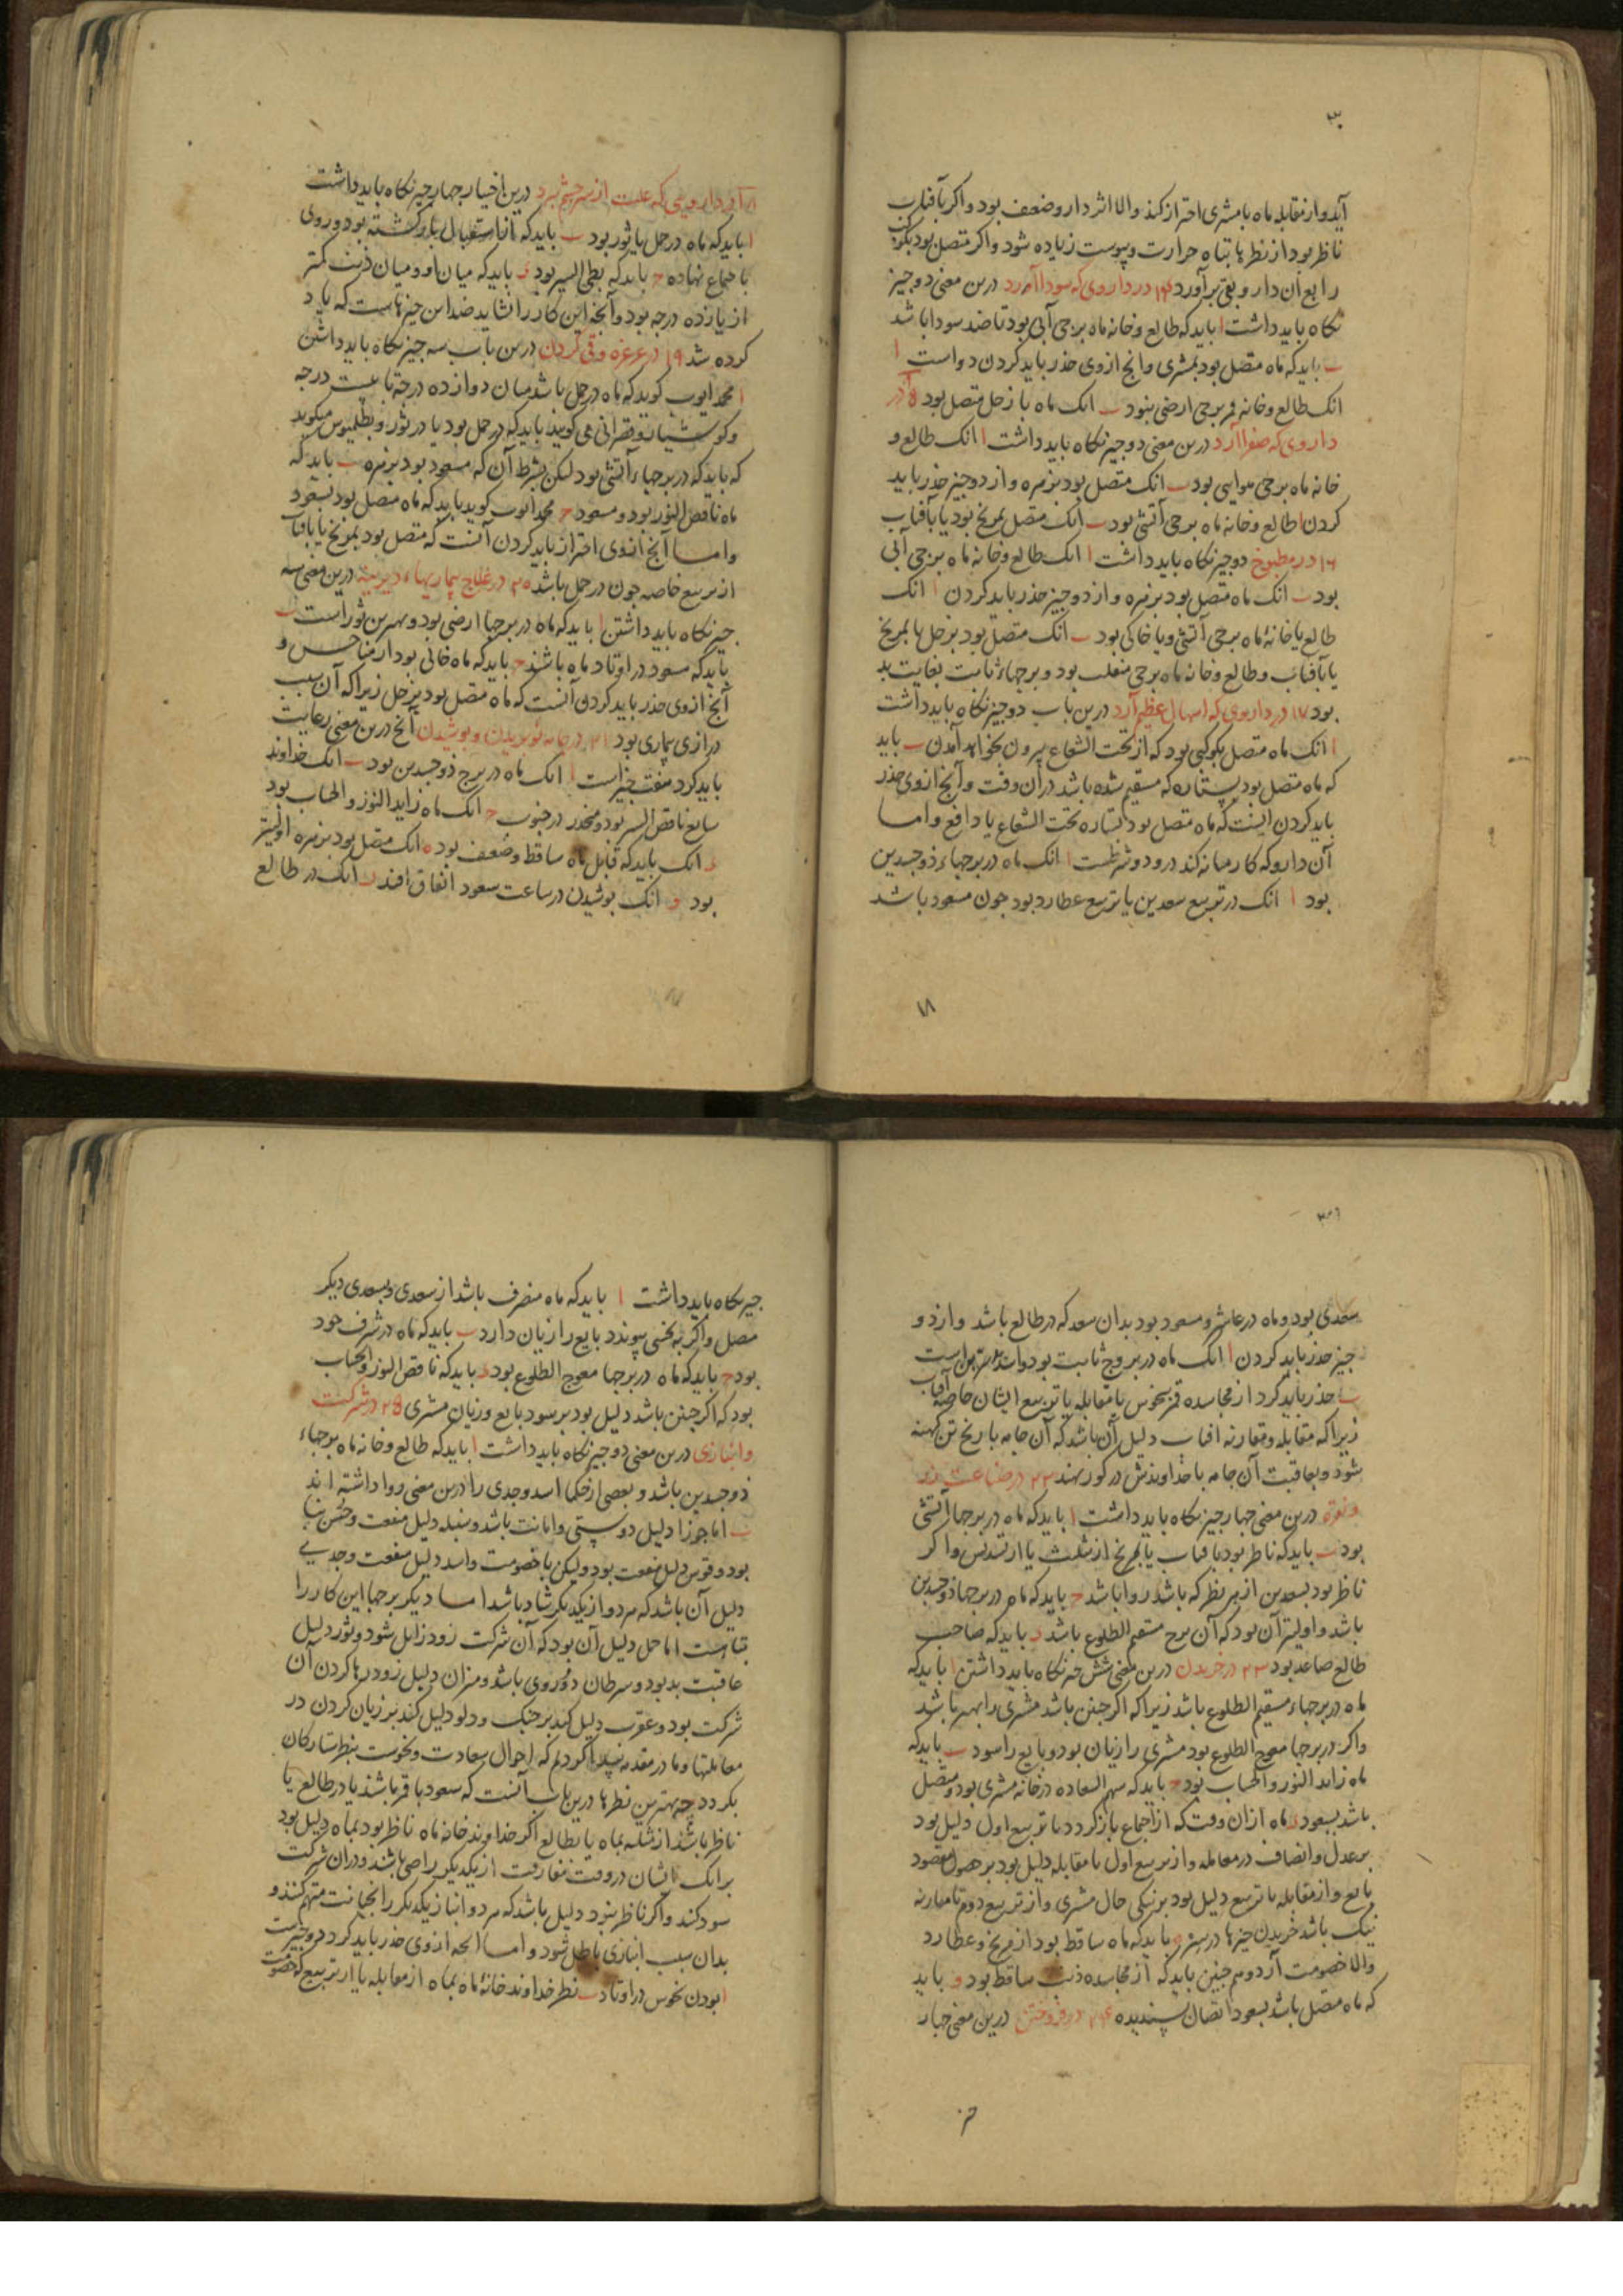 ۳۰
آید و از مقابله ماه با مشتری احتراز کند والا اثر دارو ضعف بود و اگر بآفتاب
ناظر بود از نظرها تباه حرارت و یبوست زیاده شود و اکر متصل بود بکوکب
رابع آن دارو بقی برآورد ۱۴ در داروی که سودا آورد درین معنی دو چیز
نکاه باید داشت ا باید که طالع و خانه ماه برجی آبی بود تا ضد سودا باشد
ب باید که ماه متصل بود بمشتری وانج ازوی حذر باید کردن دواست ا
انک طالع و خانه قمر برجی ارضی بنود ب انک ماه با زحل متصل بود ۱۵ در
داروی که صفرا آرد درین معنی دو جیز نکاه باید داشت ا انک طالع و
خانه ماه برجی هوایی بود ب انک متصل بود بزهره و از دو جیز حذر باید
کردن ا طالع و خانه ماه برجی آتشی بود ب انک متصل بمریخ بود یا بآفتاب
۱۶ در مطبوخ دو جیز نکاه باید داشت ا انک طالع و خانه ماه برجی آبی
بود ب انک ماه متصل بود بزهره و از دو جیز حذر باید کردن ا انک
طالع یا خانهٔ ماه برجی آتشی و یا خاکی بود ب انک متصل بود بزحل یا بمریخ
یا بآفتاب و طالع و خانه ماه برجی منقلب بود و برجهاء ثابت بغایت بد
بود ۱۷ در داروی که اسهال عظیم آرد درین باب دو جیز نکاه باید داشت
ا انک ماه متصل بکوکبی بود که از تحت الشعاع بیرون بخواهد آمدن ب باید
که ماه متصل بود بستاره که مستقیم شده باشد در آن وقت و آنج ازوی حذر
باید کردن اینست که ماه متصل بود بستاره تحت الشعاع یا دافع و اما
آن دارو که کار میانه کند درو دو شرطست ا انک ماه در برجهاء ذوجسدین
بود ا انک در تربیع سعدین یا تربیع عطارد بود جون مسعود باشد
۱۸
۱۸ در دارویی که علت از سر و چشم برد درین اختیار جهار جیز نکاه باید داشت
ا باید که ماه در حمل یا ثور بود ب باید که از استقبال بازکشته بود و روی
باجتماع نهاده ج باید که بطی السیر بود د باید که میان او و میان ذنب کمتر
از یازده درجه بود و آنجه این کار را نشاید ضد این جیزهاست که یاد
کرده شد ۱۹ در غرغره و قی کردن درین باب سه جیز نکاه باید داشتن
ا محمد ایوب کوید که ماه در حمل باشد میان دوازده درجه تا بیست درجه
و کوشیار و قصرانی می کویند باید که در حمل بود یا در ثور و بطلمیوس میکوید
که باید که در برجهاء آتشی بود لیکن بشرط آن که مسعود بود بزهره ب باید که
ماه ناقص النور بود و مسعود ج محمد ایوب کوید باید که ماه متصل بود بسعود
و اما آنج ازوی احتراز باید کردن آنست که متصل بود بمریخ یا بآفتاب
از تربیع خاصه جون در حمل باشد ۲۰ در علاج بیماریهاء دیرینه درین معنی سه
جیز نکاه باید داشتن ا باید که ماه در برجها ارضی بود و بهترین ثور است ب
باید که سعود در اوتاد ماه باشند ج باید که ماه خالی بود از مناحس و
آنج ازوی حذر باید کردن آنست که ماه متصل بود بزحل زیرا که آن سبب
درازی بیماری بود ۲۱ در جامه نو بریدن و بوشیدن آنج درین معنی رعایت
باید کرد هفت جیز است ا انک ماه در برج ذوجسدین بود ب انک خداوند
سابع ناقص السیر بود و منحدر در جنوب ج انک ماه زاید النور و الحساب بود
د انک باید که قابل ماه ساقط و ضعیف بود ه انک متصل بود بزهره اولیتر
بود و انک بوشیدن در ساعت سعود اتفاق افتد ز انک در طالع
۳۱
سعدی بود و ماه در عاشر و مسعود بود بدان سعد که در طالع باشد و از دو
جیز حذر باید کردن ا انک ماه در بروج ثابت بود و اسد بترین است
ب حذر باید کرد از مجاسده قمر بنحوس یا مقابله یا تربیع ایشان خاصه آفتاب
زیرا که مقابله و مقارنه افتاب دلیل آن باشد که آن جامه بارنج تن کهنه
شود و بعاقبت آن جامه با خداوندش در کور نهند ۲۲ در صناعت زر
و نقره درین معنی جهار جیز نکاه باید داشت ا باید که ماه در برجها آتشی
بود ب باید که ناظر بود بافتاب یا بمریخ از تثلیث یا از تسدیس و اکر
ناظر بود بسعدین از هر نظر که باشد روا باشد ج باید که ماه در برجها ذوجسدین
باشد و اولیتر آن بود که آن برج مستقیم الطلوع باشد د باید که صاحب
طالع صاعد بود ۲۳ در خریدن درین معنی شش جیز نکاه باید داشتن ا باید که
ماه در برجهاء مستقیم الطلوع باشد زیرا که اکر جنین باشد مشتری را بهتر باشد
واکر در برجها معوج الطلوع بود مشتری را زیان بود و بایع را سود ب باید که
ماه زاید النور و الحساب بود ج باید که سهم السعاده در خانه مشتری بود و متصل
باشد بسعود د ماه از آن وقت که از اجتماع بازکردد تا تربیع اول دلیل بود
بر عدل و انصاف در معامله و از تربیع اول تا مقابله دلیل بود بر حصول مقصود
بایع و از مقابله تا تربیع دلیل بود بر نیکی حال مشتری و از تربیع دوم تا مقارنه
نیک باشد خریدن جیزها در ستر ه باید که ماه ساقط بود از مریخ و عطارد
والا خصومت آرد و هم جنین باید که از مجاسده ذنب ساقط بود و باید
که ماه متصل باشد بسعود اتصال پسندیده ۲۴ در فروختن درین معنی جهار
جیز نکاه باید داشت ا باید که ماه منصرف باشد از سعدی و بسعدی دیکر
متصل و اکر به نحسی پیوندد بایع را زیان دارد ب باید که ماه در شرف خود
بود ج باید که ماه در برجها معوج الطلوع بود د باید که ناقص النور و الحساب
بود که اکر جنین باشد دلیل بود بر سود بایع و زیان مشتری ۲۵ در شرکت
و انبازی درین معنی دو جیز نکاه باید داشت ا باید که طالع و خانه ماه برجهاء
ذوجسدین باشد و بعضی از حکما اسد و جدی را درین معنی روا داشته اند
ب اما جوزا دلیل دوستی و امانت باشد و سنبله دلیل منفعت و حسن ثنا
بود و قوس دلیل منفعت بود ولیکن با خصومت و اسد دلیل منفعت و جدی
دلیل آن باشد که هر دو از یکدیکر شاد باشد اما دیکر برجها این کار را
تباهست اما حمل دلیل آن بود که آن شرکت زود زایل شود و ثور دلیل
عاقبت بد بود و سرطان دوروی باشد و میزان دلیل زود رها کردن آن
شرکت بود و عقرب دلیل کند بر جنک و دلو دلیل کند بر زیان کردن در
معاملتها و ما در مقدمه پیدا کردیم که احوال سعادت و نحوست بنظر ستارکان
بکردد چه بهترین نظرها درین باب آنست که سعود با قمر باشند یا در طالع یا
ناظر باشند از تثلیث بماه یا بطالع اکر خداوند خانه ماه ناظر بود بماه دلیل بود
برانک ایشان در وقت مفارقت از یکدیکر راضی باشند و در آن شرکت
سود کند و اکر ناظر نبود دلیل باشد که هر دو انباز یکدیکر را بخیانت متهم کنند و
بدان سبب انبازی باطل شود و اما آنجه ازوی حذر باید کرد دو جیز است
ا بودن نحوس در اوتاد ب نظر خداوند خانهٔ ماه بماه از مقابله یا از تربیع که خصومت